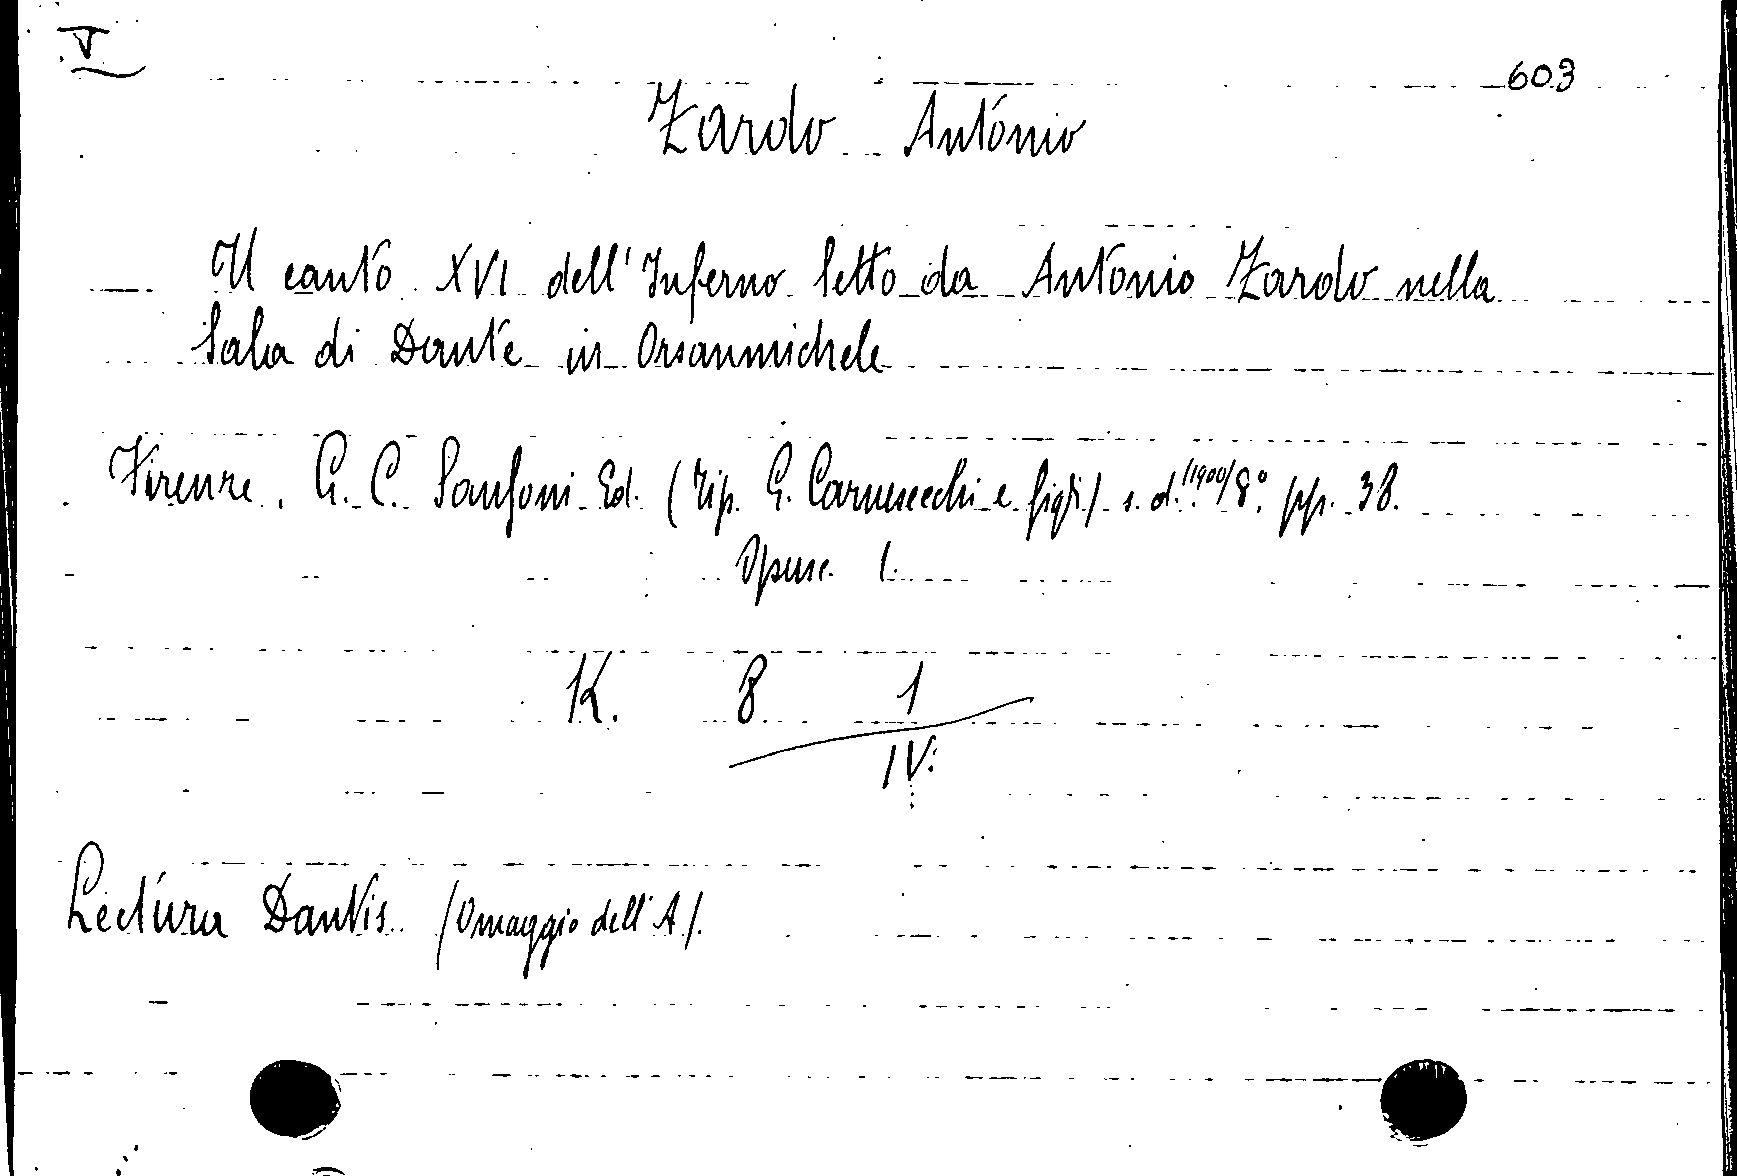 V
603
Zardo Antonio
Il canto XVI dell'Inferno letto da Antonio Zardo nella
Sala di Dante in Orsanmichele
Firenze, G. C. Sansoni Ed. (Tip. G. Carnesecchi e figli) s. d. (1900) 8°. pp. 38.
Opusc. 1.
K. 8 1
IV.
Lectura Dantis. (Omaggio dell'A).